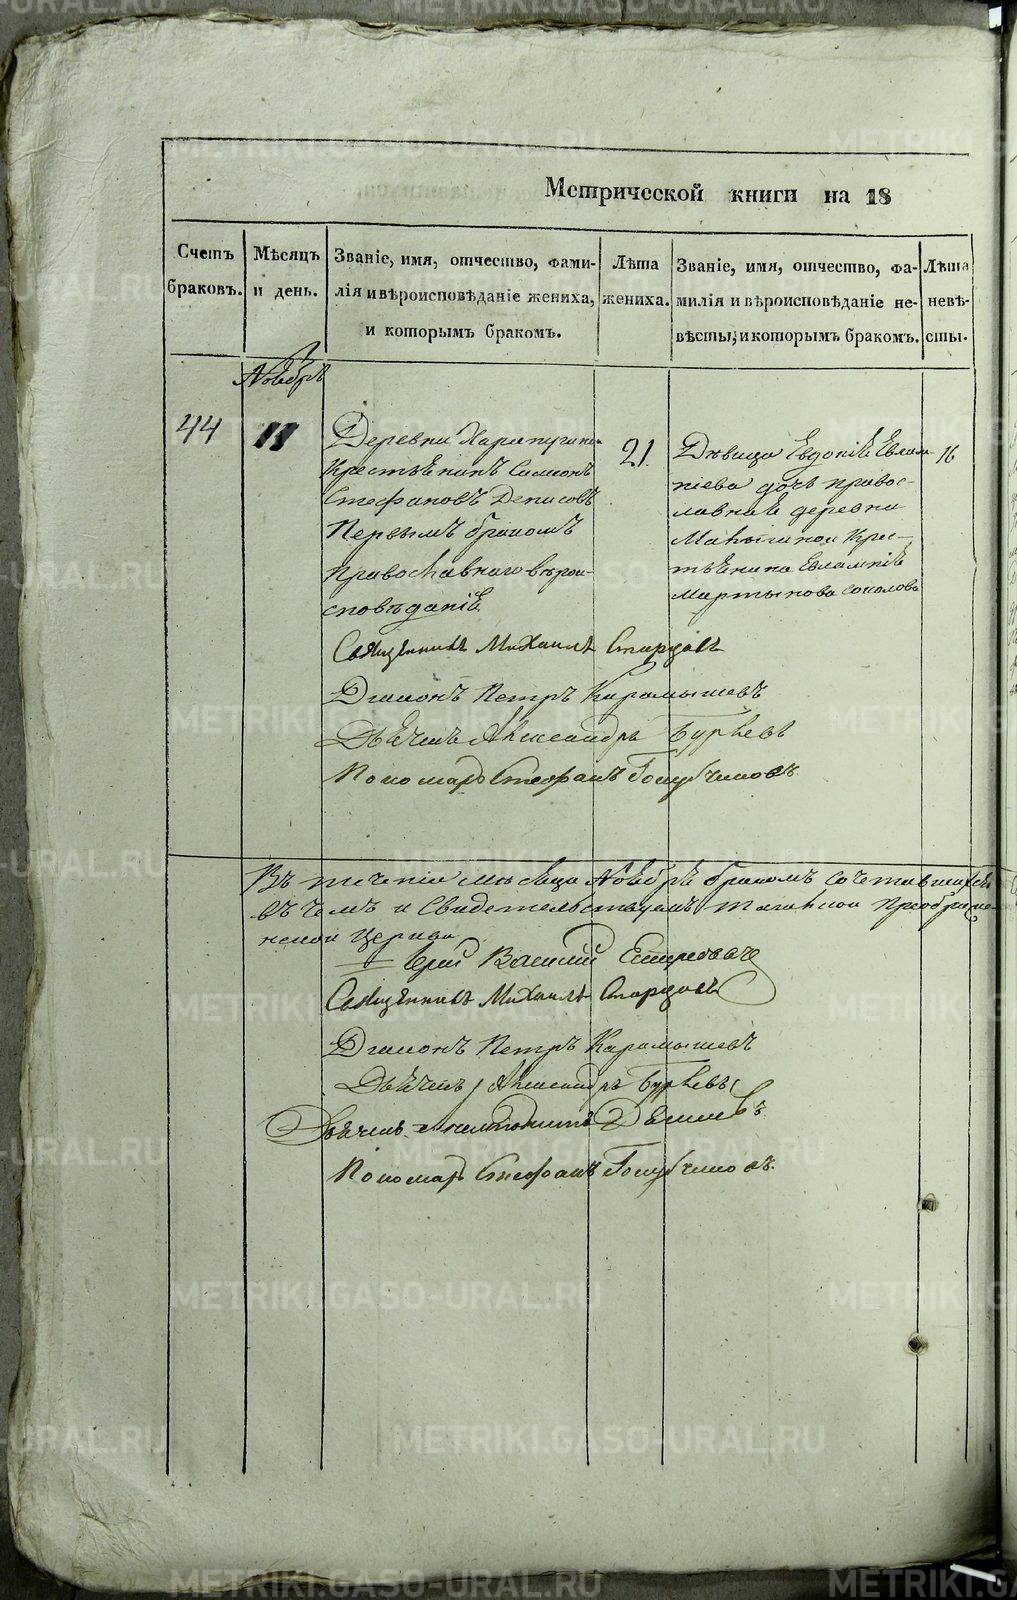 Метрической книги на 18
Счетъ браковъ.
Мѣсяцъ и день.
Званіе, имя, отчество, фами-
лія и вѣроисповѣданіе жениха,
и которымъ бракомъ.
Лѣта жениха.
Званіе, имя, отчество, фа-
милія и вѣроисповѣданіе не-
вѣсты, и которымъ бракомъ.
Лѣта невѣ-
сты.
Ноябрь
44
11
Деревни
Крестьянинъ Симеонъ
Стефановъ Денисовъ
Первымъ бракомъ
Православнаго вѣрои-
сповѣданіе
21.
Дѣвица Евдокіе Евлам-
піева дочь правос-
лавная деревни
Мальгиной Крес-
тьянина Евлампіе
Мартынова Соколова
16
Священникъ Михаилъ Старцовъ
Діаконъ Петръ Карамышевъ
Дьячекъ Александръ
Пономарь Стефанъ Голубчиковъ
Въ теченіи мѣсяца Ноябрѣ бракомъ сочетавшихся
въ чемъ и Свидетельствуемъ Преображе-
нской Церкви
Іерей Василій
Священникъ Михаилъ Старцовъ
Діаконъ Петръ Карамышевъ
Дьячекъ Александръ
Дьячекъ
Пономарь Стефанъ Голубчиковъ
METRIKI.GASO-URAL.RU